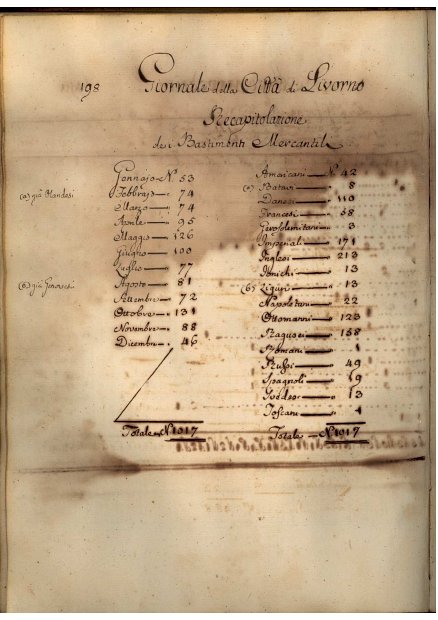 198
Giornale della Città di Livorno
Recapitolazione
dei Bastimenti Mercantili
(a) già Olandesi
(b) già Genovesi
Gennajo N.º 53
Febbrajo " 74
Marzo " 74
Aprile " 95
Maggio " 126
Giugno " 100
Luglio " 77
Agosto " 81
Settembre " 72
Ottobre " 131
Novembre " 88
Dicembre " 46
Totale N.º 1017
Americani N.º 42
(a) Batavi " 8
Danesi " 110
Francesi " 58
Gerosolimitani " 3
Imperiali " 171
Inglesi " 213
Jonichi " 13
(b) Liguri " 13
Napoletani " 22
Ottomanni " 123
Ragusei " 158
Romani " 1
Russi " 49
Spagnoli " 19
Svedesi " 13
Toscani " 1
Totale N.º 1017